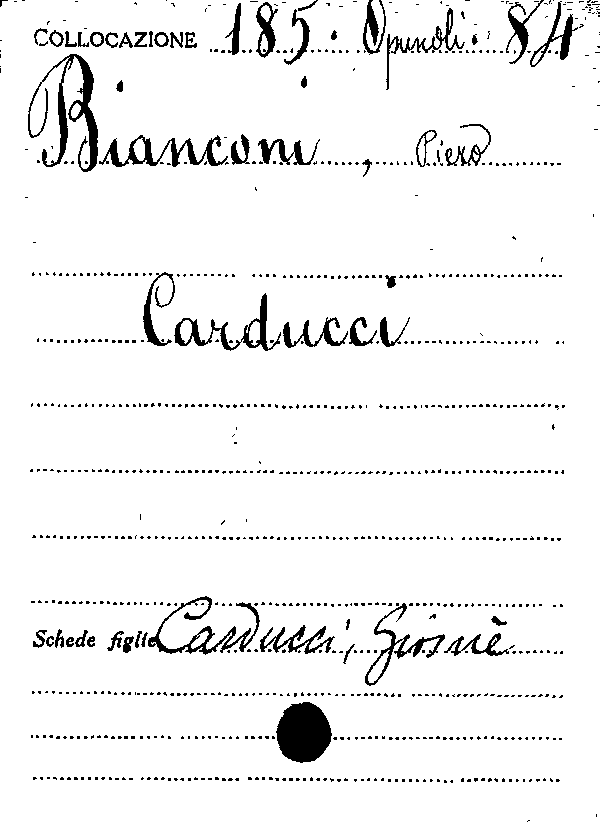 COLLOCAZIONE 185. Opuscoli. 84
Bianconi, Piero
Carducci
Schede figlie Carducci, Giosuè